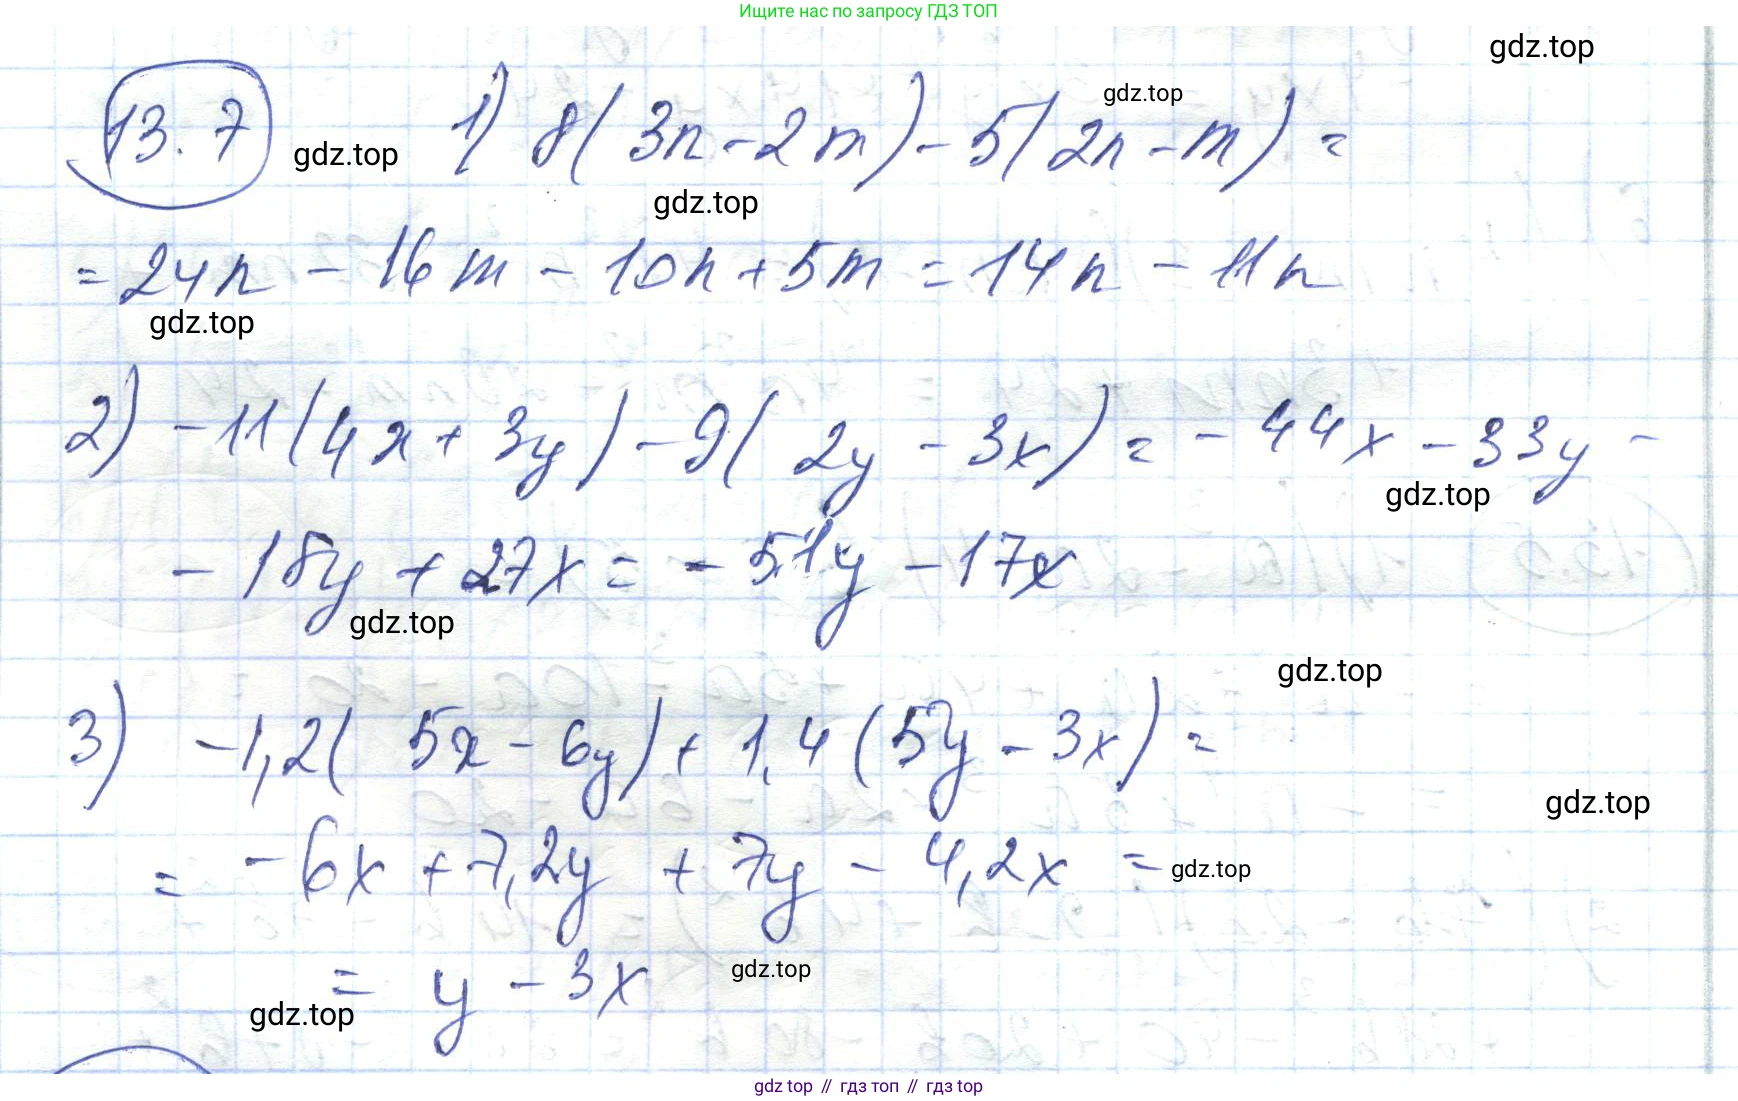 Ищите нас по запросу ГДЗ ТОП
gdz.top
13.7 gdz.top 1) 8(3n - 2m) - 5(2n - m) =
gdz.top
gdz.top
= 24n - 16m - 10n + 5m = 14n - 11n
gdz.top
2) -11(4x + 3y) - 9(2y - 3x) = -44x - 33y -
gdz.top
- 18y + 27x = - 51y - 17x
gdz.top
gdz.top
3) -1,2(5x - 6y) + 1,4(5y - 3x) =
gdz.top
= -6x + 7,2y + 7y - 4,2x =
gdz.top
= y - 3x
gdz.top
gdz.top
gdz top // гдз топ // гдз top